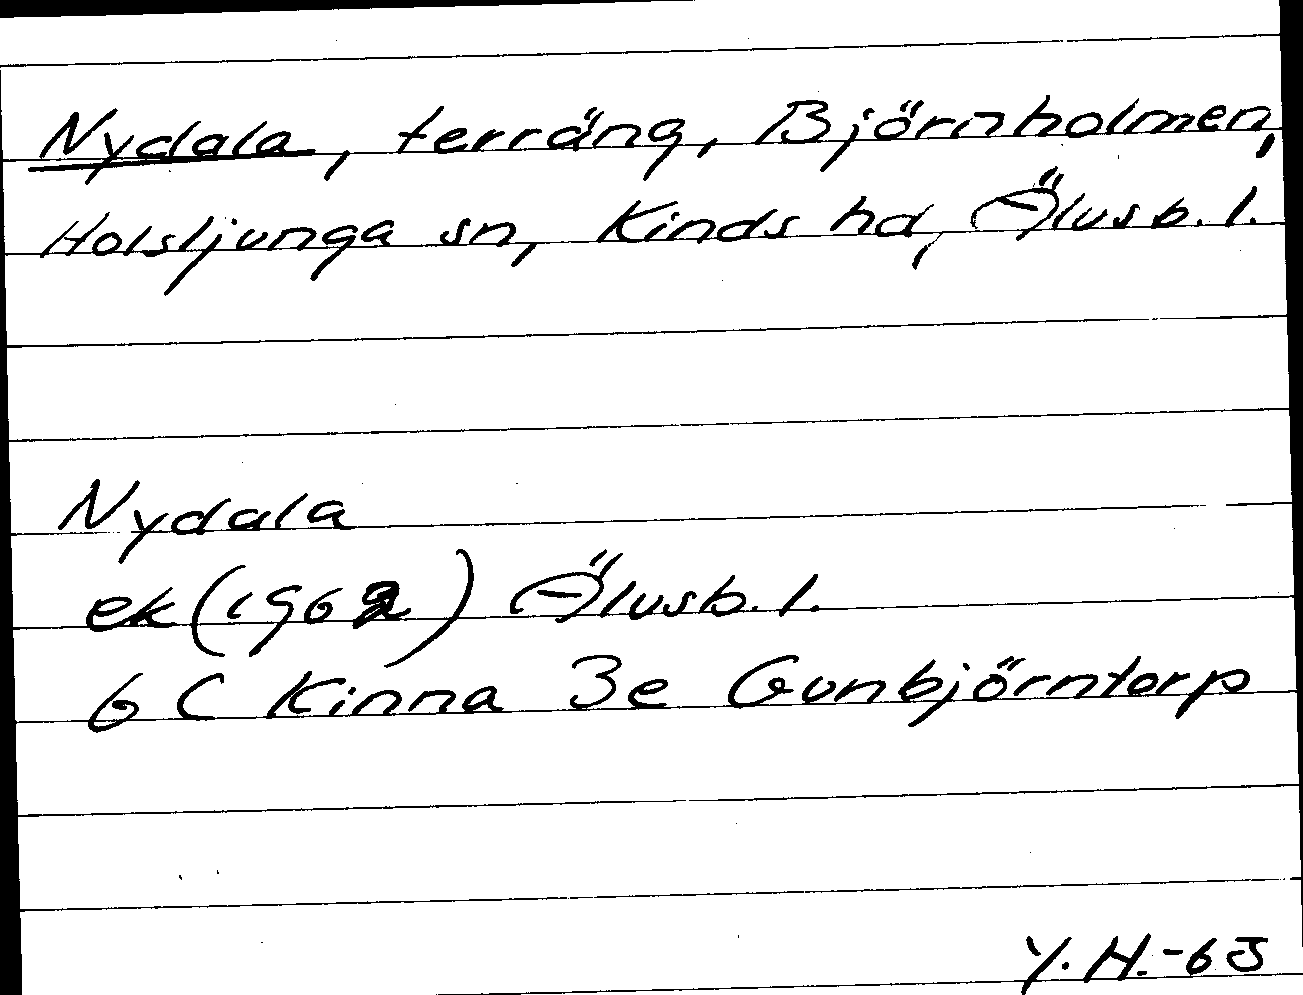 Nydala, terräng, Björnholmen,
Holsljunga sn, Kinds hd, Älvsb. l.
Nydala
ek (1962) Älvsb. l.
6 C Kinna 3e Gunbjörntorp
Y. H. -65